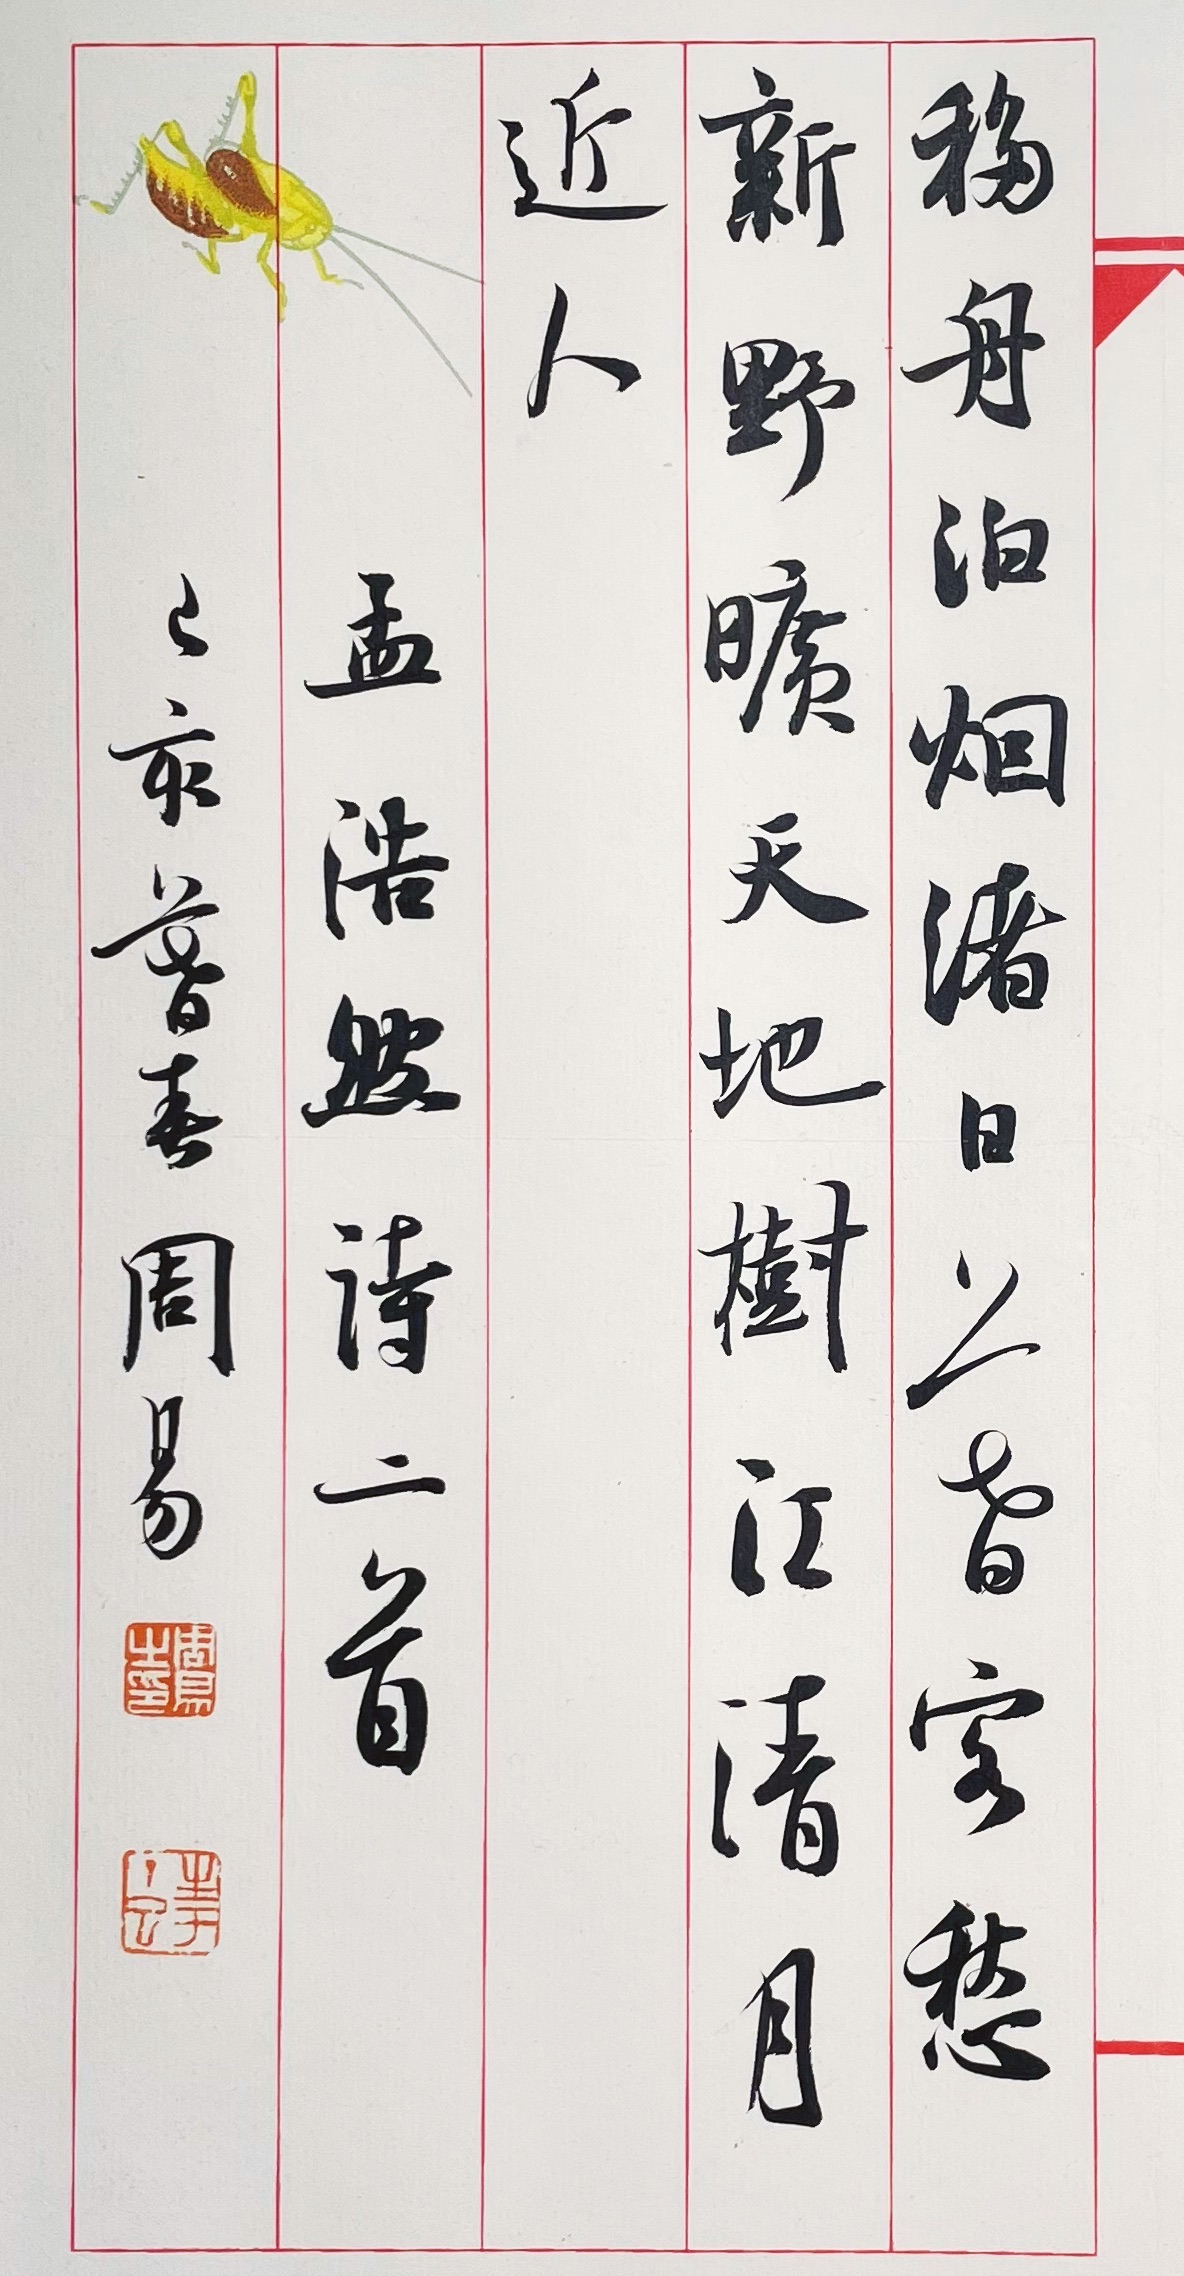 移舟泊烟渚日暮客愁
新野曠天地樹江清月
近人
孟浩然詩二首
己亥暮春周易
周易之印